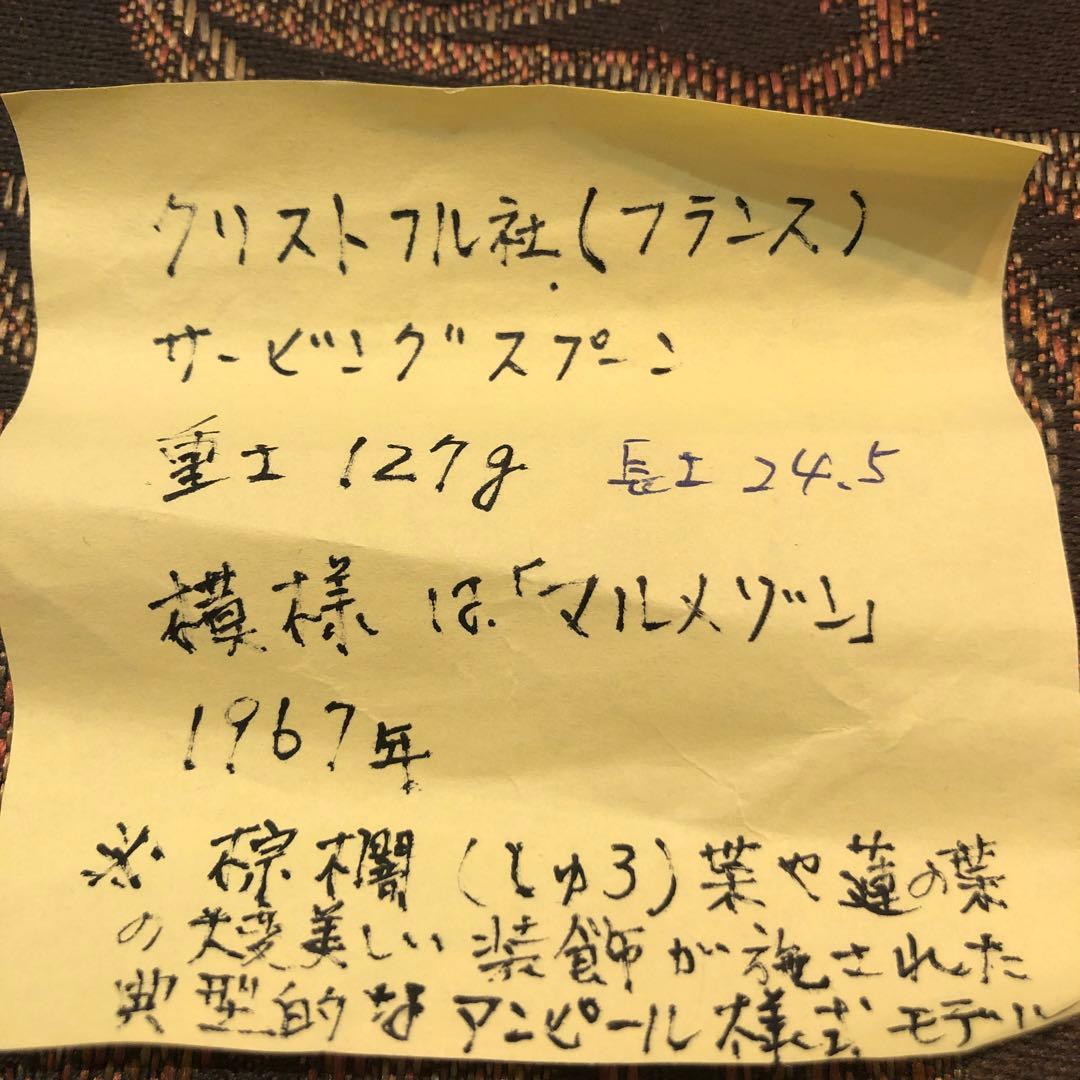 クリストフル社(フランス)
サービングスプーン
重さ 127g 長さ 24.5
模様は「マルメゾン」
1967年
※ 棕櫚(しゅろ)葉や蓮の葉
の大変美しい装飾が施された
典型的なアンピール様式モデル